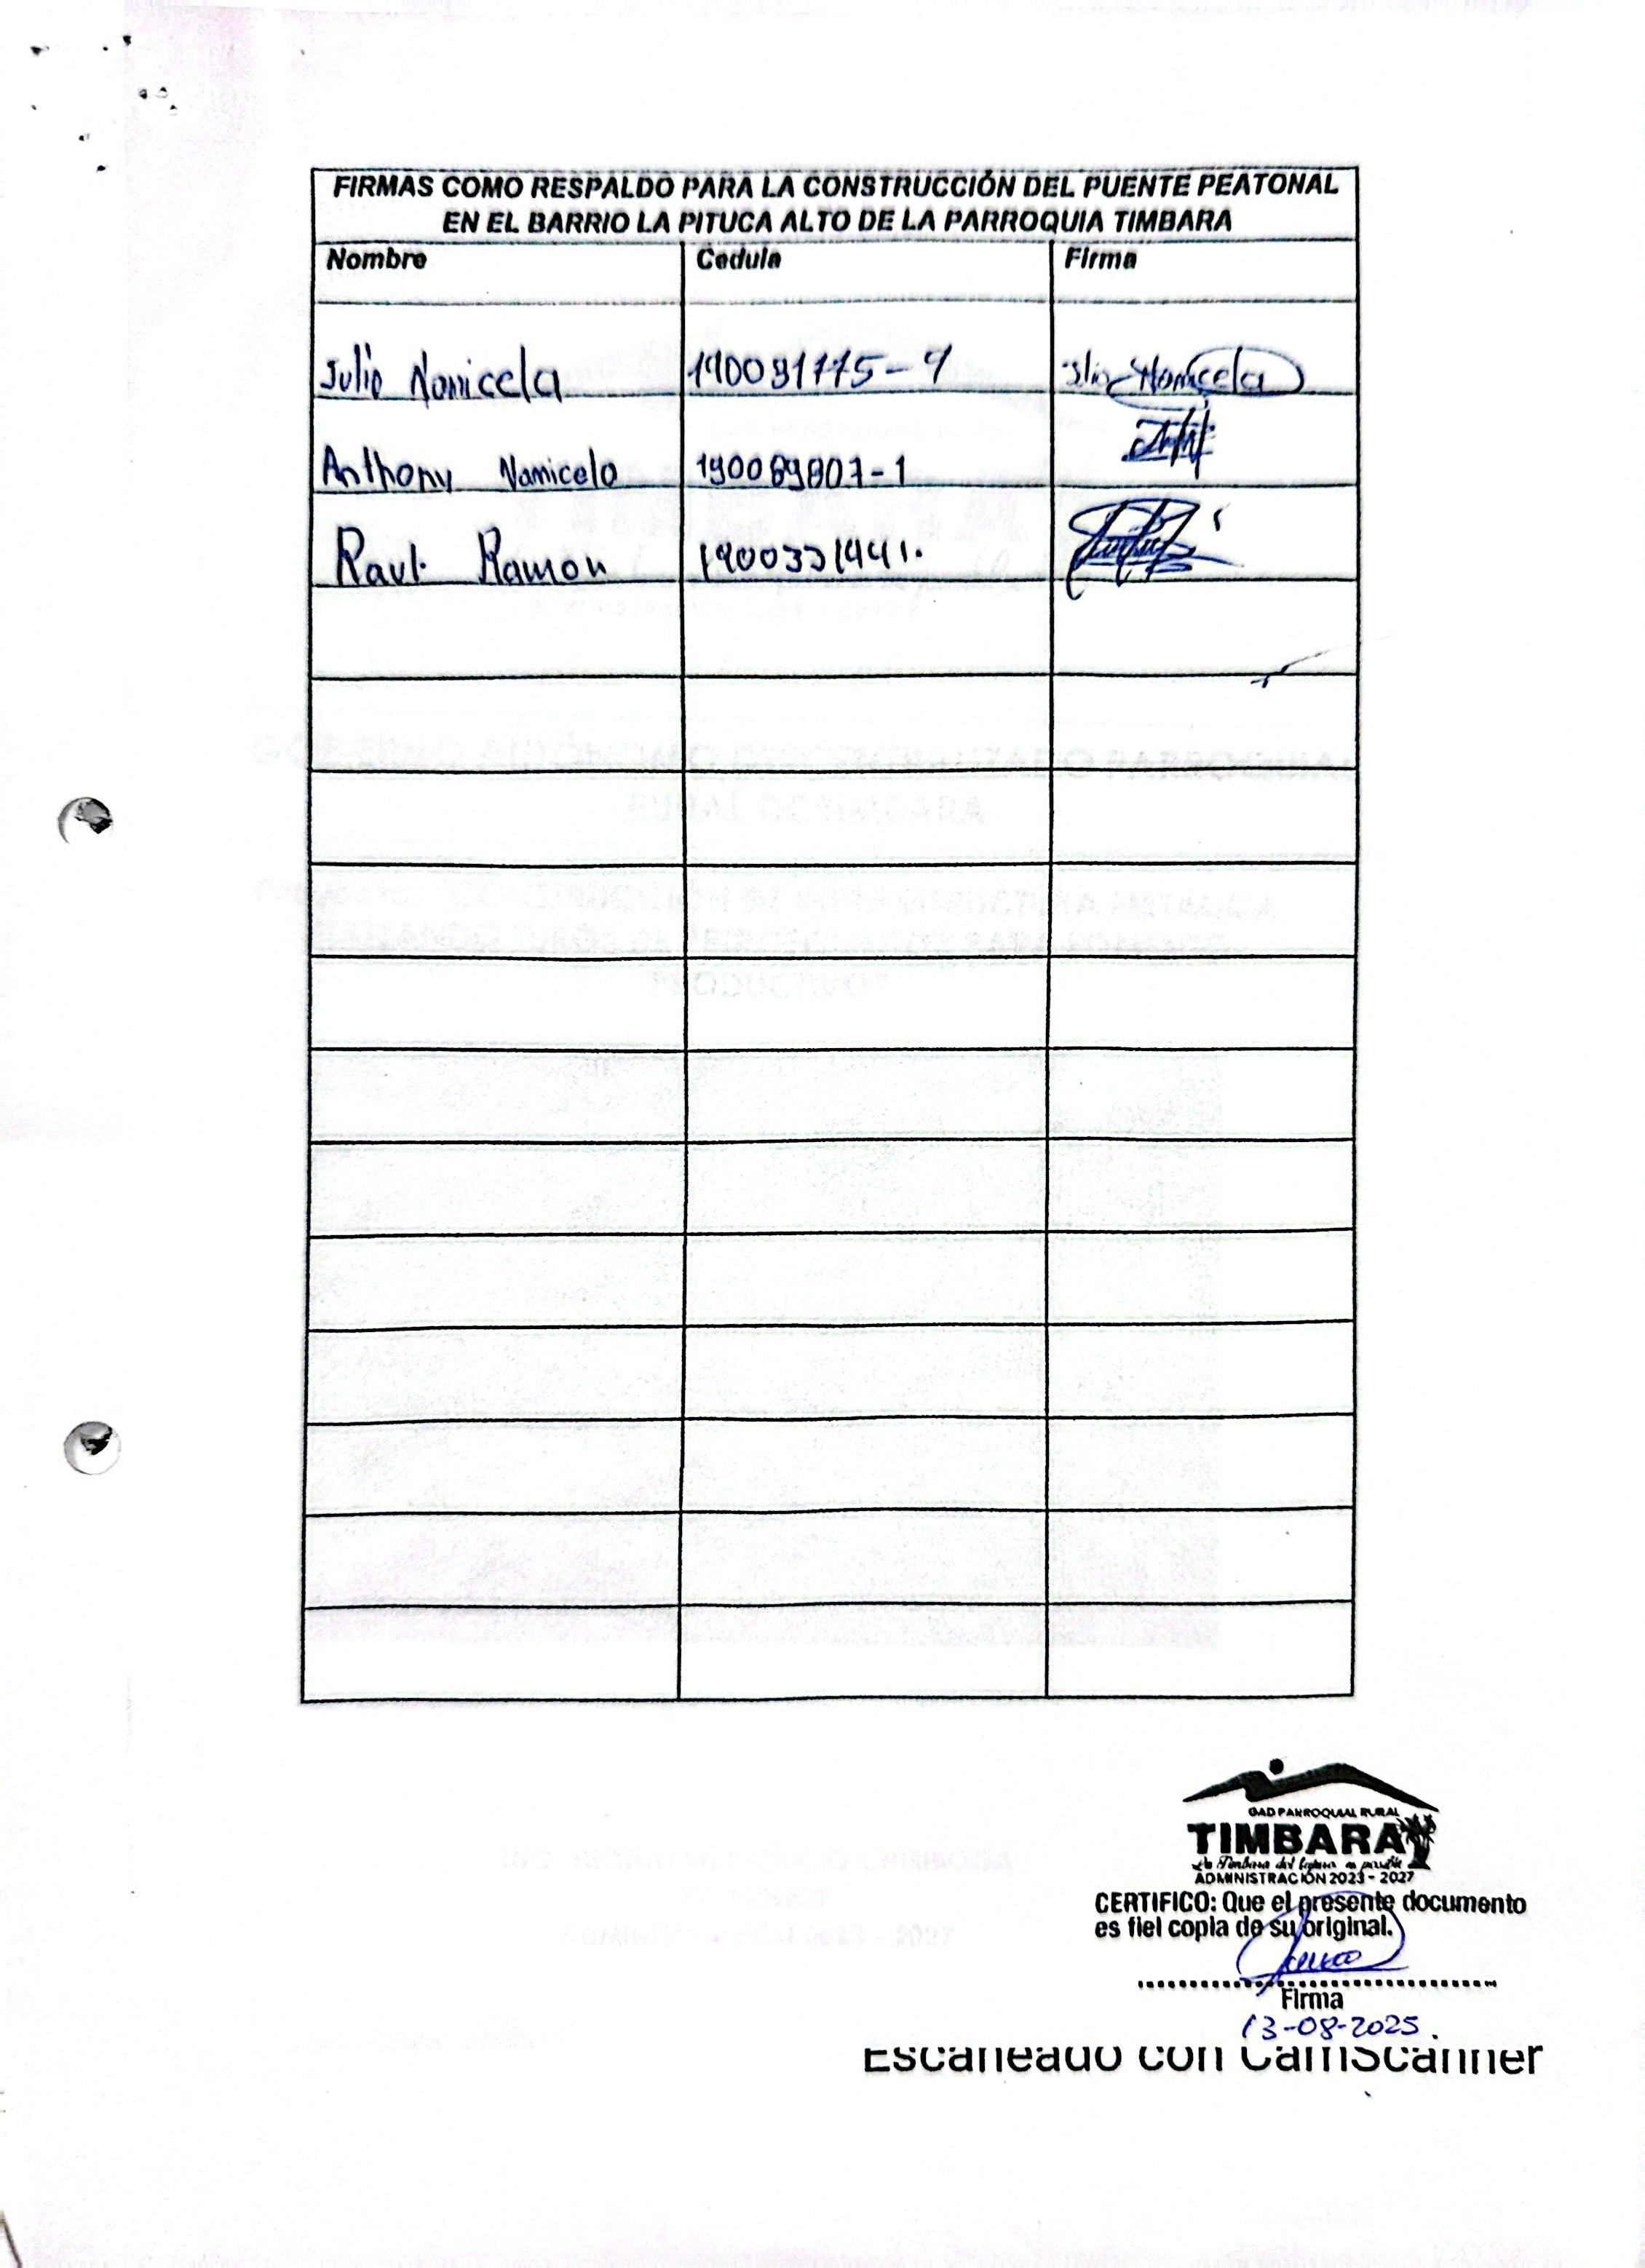 FIRMAS COMO RESPALDO PARA LA CONSTRUCCIÓN DEL PUENTE PEATONAL
EN EL BARRIO LA PITUCA ALTO DE LA PARROQUIA TIMBARA
Nombre Cedula Firma
Julio Namicela 190091175-9 Julio Namicela
Anthony Namicela 190089807-1
Raul Ramon 1900331441.
GAD PARROQUIAL RURAL
TIMBARA
La Timbara del futuro es posible
ADMINISTRACIÓN 2023 - 2027
CERTIFICO: Que el presente documento
es fiel copia de su original.
Firma
13-08-2025.
Escaneado con CamScanner